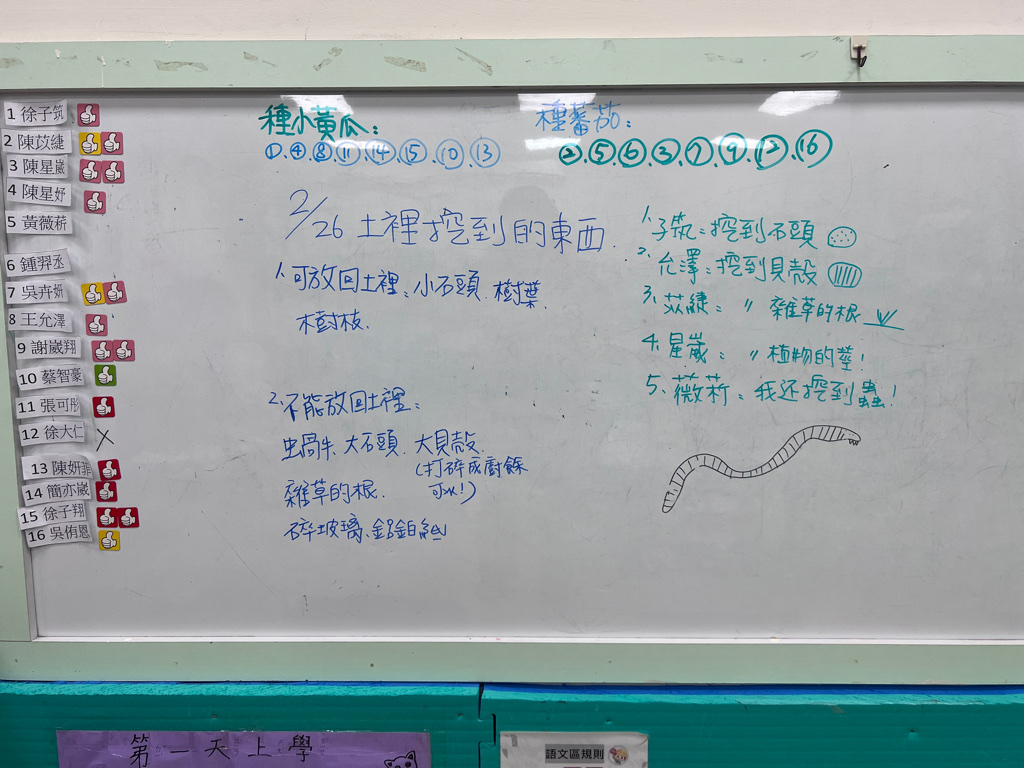 1 徐子筑
2 陳苡緁
3 陳星崴
4 陳星妤
5 黃薇菥
6 鍾羿丞
7 吳卉妍
8 王允澤
9 謝崴翔
10 蔡智豪
11 張可彤
12 徐大仁
13 陳妍菲
14 簡亦崴
15 徐子翔
16 吳侑恩
種小黃瓜：
①.④.⑧.⑪.⑭.⑮.⑩.⑬
種蕃茄：
②.⑤.⑥.③.⑦.⑨.⑫.⑯
2/26 土裡挖到的東西.
1. 可放回土裡：小石頭. 樹葉.
木樹枝.
2. 不能放回土裡：
虫蝸牛. 大石頭. 大貝殼.
(打碎成廚餘
可以!)
雜草的根.
碎玻璃、鋁鉑紙
1. 子筑：挖到石頭
2. 允澤：挖到貝殼
3. 苡緁：〃 雜草的根
4. 星崴：〃 植物的莖!
5. 薇菥：我还挖到蟲!
第一天上學
語文區規則